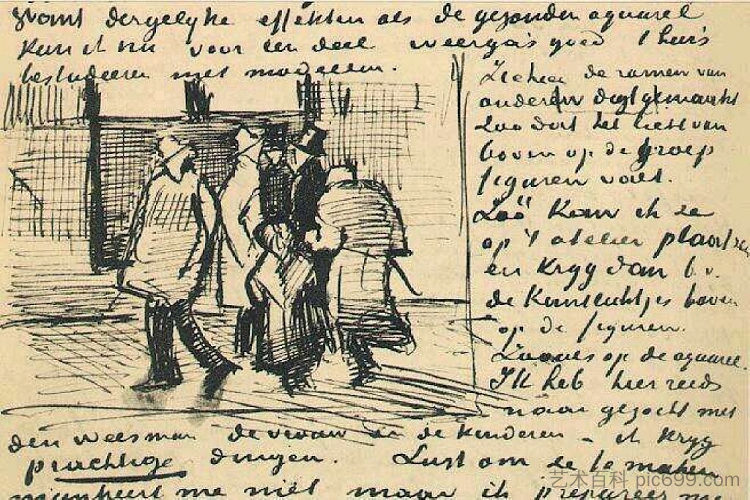 want dergelyke effekten als de gezonden aquarel
kan ik nu voor een deel weergaas goed t'huis
bestudeeren met modellen.
Ik heb de ramen van
onderen digt gemaakt
Zoo dat het licht van
boven op de groep
figuren valt.
Zóó kan ik ze
op 't atelier plaatsen
en kryg dan b.v.
de kantlichtjes boven
op de figuren.
Zooals op de aquarel.
Ik heb hier reeds
naar gezocht met
den weesman de vrouw en de kinderen – ik kryg
prachtige dingen. Lust om ze te maken
me niet maar ik
艺术百科 pic699.com